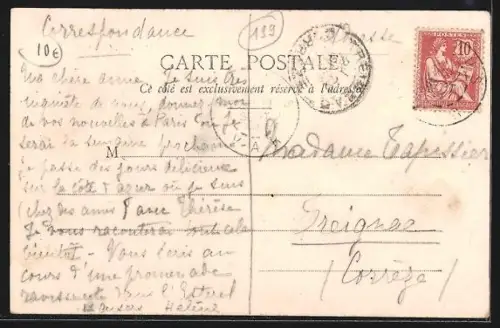 Correspondance
10€
139
Adresse
10
POSTES
CARTE POSTALE
Ce côté est exclusivement réservé à l'adresse
Ma chère dame, Je suis très
inquiète de vous, donnez moi
de vos nouvelles à Paris où je
serai la semaine prochaine
M
Je passe des jours délicieux
sur la côte d'azur où je suis
(chez des amis) avec Thérèse
Je vous raconterai tout cela
bientôt - Vous écris au
cours d'une promenade
ravissante dans l'Esterel
Hélène
Madame Tapissier
Treignac
(Corrèze)